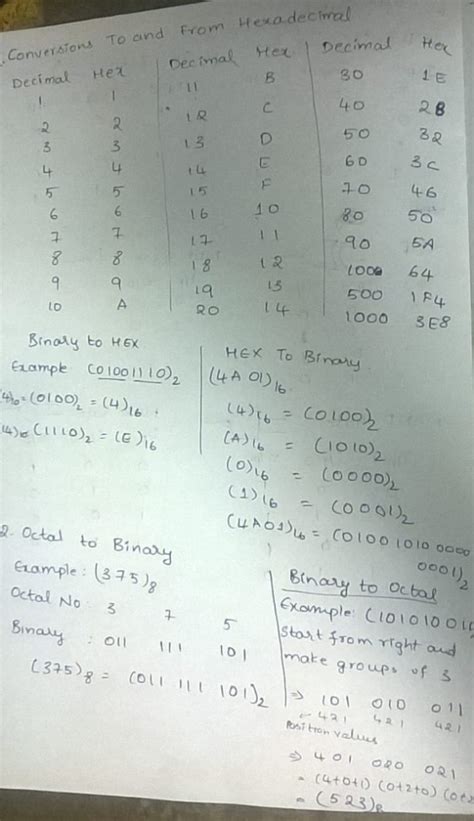 Conversions To and From Hexadecimal
Decimal Hex
1 1
2 2
3 3
4 4
5 5
6 6
7 7
8 8
9 9
10 A
Decimal Hex
11 B
12 C
13 D
14 E
15 F
16 10
17 11
18 12
19 13
20 14
Decimal Hex
30 1E
40 28
50 32
60 3C
70 46
80 50
90 5A
1000 64
500 1F4
1000 3E8
Binary to HEX
Example (01001110)2
=(0100)2 = (4)16
(1110)2 = (E)16
HEX To Binary
(4A01)16
(4)16 = (0100)2
(A)16 = (1010)2
(0)16 = (0000)2
(1)16 = (0001)2
(4A01)16 = (01001010 0000
0001)2
2. Octal to Binary
Example: (375)8
Octal No: 3 7 5
Binary : 011 111 101
(375)8 = (011 111 101)2
Binary to Octal
Example: (101010011
Start from right and
make groups of 3
⇒ 101 010 011
← 421 421 421
Position values
⇒ 401 020 021
= (4+0+1) (0+2+0) (0+2
= (523)8